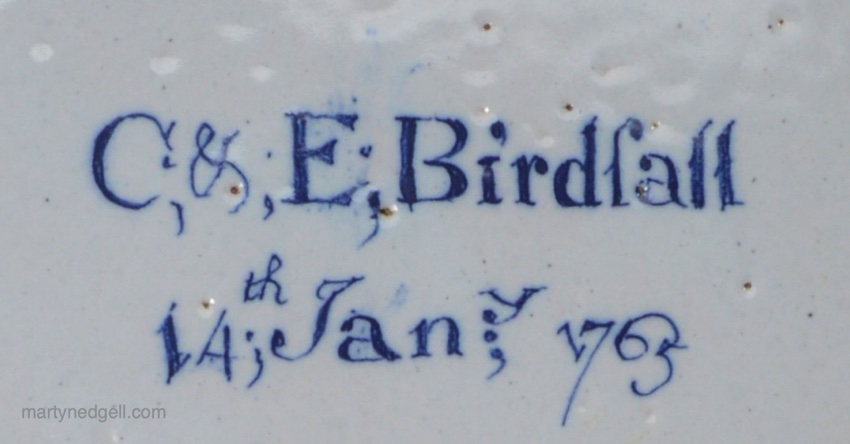 C;&;E;Birdſall
14;th Jan;y 1763
martynedgell.com